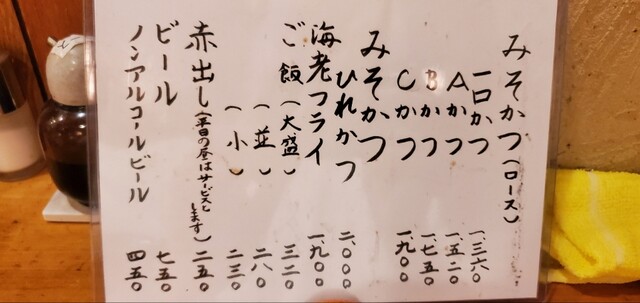 みそかつ(ロース)
一口かつ 一三六〇
Aかつ 一、五二〇
Bかつ 一七五〇
Cかつ 一、九〇〇
みそかつ
ひれかつ 二、〇〇〇
海老フライ 一、九〇〇
ご飯(大盛) 三二〇
(並) 二八〇
(小) 二三〇
赤出し(平日の昼はサービスとします) 二五〇
ビール 七五〇
ノンアルコールビール 四五〇